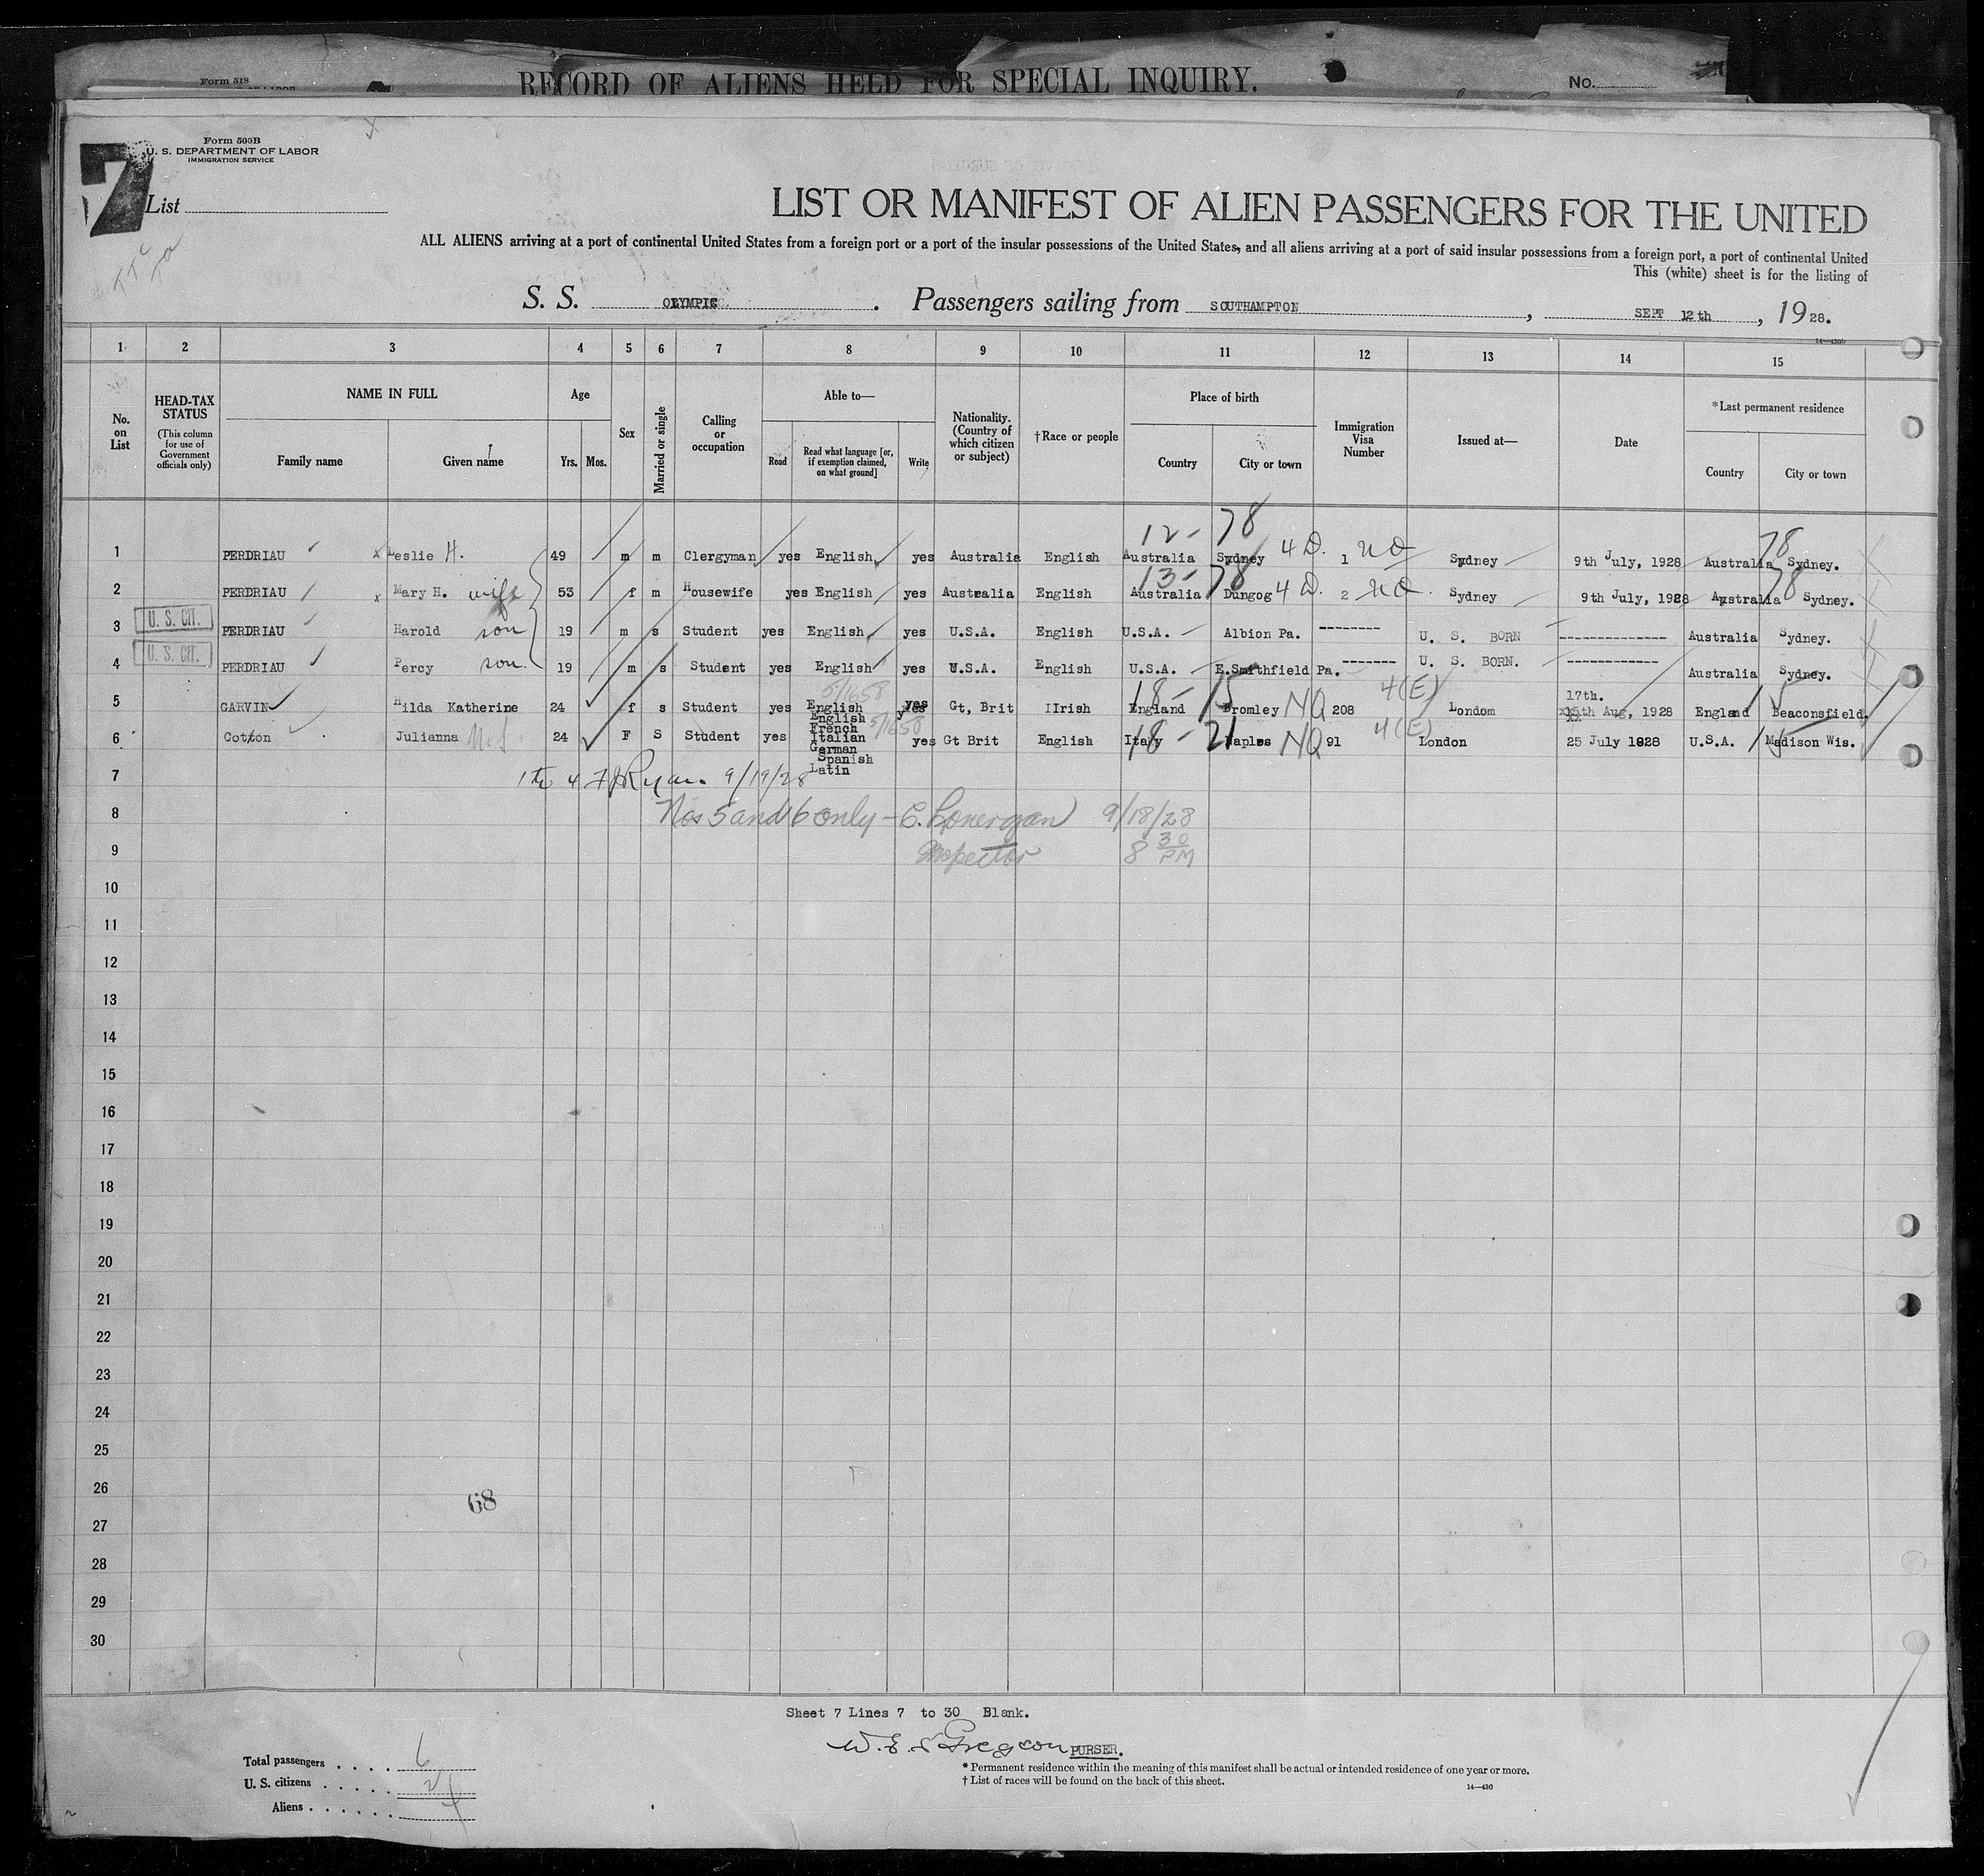 Form 518
RECORD OF ALIENS HELD FOR SPECIAL INQUIRY.
No.
7
Form 500B
U. S. DEPARTMENT OF LABOR
IMMIGRATION SERVICE
List
LIST OR MANIFEST OF ALIEN PASSENGERS FOR THE UNITED
ALL ALIENS arriving at a port of continental United States from a foreign port or a port of the insular possessions of the United States, and all aliens arriving at a port of said insular possessions from a foreign port, a port of continental United
This (white) sheet is for the listing of
S. S. OLYMPIC. Passengers sailing from SOUTHAMPTON, SEPT 12th, 1928.
1 2 3 4 5 6 7 8 9 10 11 12 13 14 15
No. on List
HEAD-TAX STATUS (This column for use of Government officials only)
NAME IN FULL
Family name
Given name
Age
Yrs. Mos.
Sex
Married or single
Calling or occupation
Able to—
Read
Read what language [or, if exemption claimed, on what ground]
Write
Nationality. (Country of which citizen or subject)
†Race or people
Place of birth
Country
City or town
Immigration Visa Number
Issued at—
Date
*Last permanent residence
Country
City or town
12- 78 78
1 PERDRIAU x Leslie H. 49 m m Clergyman yes English yes Australia English Australia Sydney 4 D. 1 NQ Sydney 9th July, 1928 Australia Sydney.
13- 78 78
2 PERDRIAU x Mary H. wife 53 f m Housewife yes English yes Australia English Australia Dungog 4 D. 2 NQ Sydney 9th July, 1928 Australia Sydney.
U. S. CIT.
3 PERDRIAU Harold son 19 m s Student yes English yes U.S.A. English U.S.A. Albion Pa. -------- U. S. BORN -------------- Australia Sydney.
U. S. CIT.
4 PERDRIAU Percy son. 19 m s Student yes English yes U.S.A. English U.S.A. E.Smithfield Pa. ------- U. S. BORN. ------------ Australia Sydney.
5/1658 18- 15 4(E) 17th. 15
5 GARVIN Hilda Katherine 24 f s Student yes English yes Gt, Brit IIrish England Bromley NQ 208 Londom 15th Aug, 1928 England Beaconsfield.
5/1658 18- 21 4(E) 15
6 Cotton Julianna 24 F S Student yes English French Italian German Spanish Latin yes Gt Brit English Italy Naples NQ 91 London 25 July 1928 U.S.A. Madison Wis.
7 1 to 4 F J Ryan. 9/19/28
8 Nos 5 and 6 only - C. Lonergan 9/18/28
9 Inspector 8 30 PM
10
11
12
13
14
15
16
17
18
19
20
21
22
23
24
25
26
68
27
28
29
30
Sheet 7 Lines 7 to 30 Blank.
PURSER.
Total passengers . . . . 6
U. S. citizens . . . . . 2
Aliens . . . . . . 4
* Permanent residence within the meaning of this manifest shall be actual or intended residence of one year or more.
† List of races will be found on the back of this sheet.
14—430